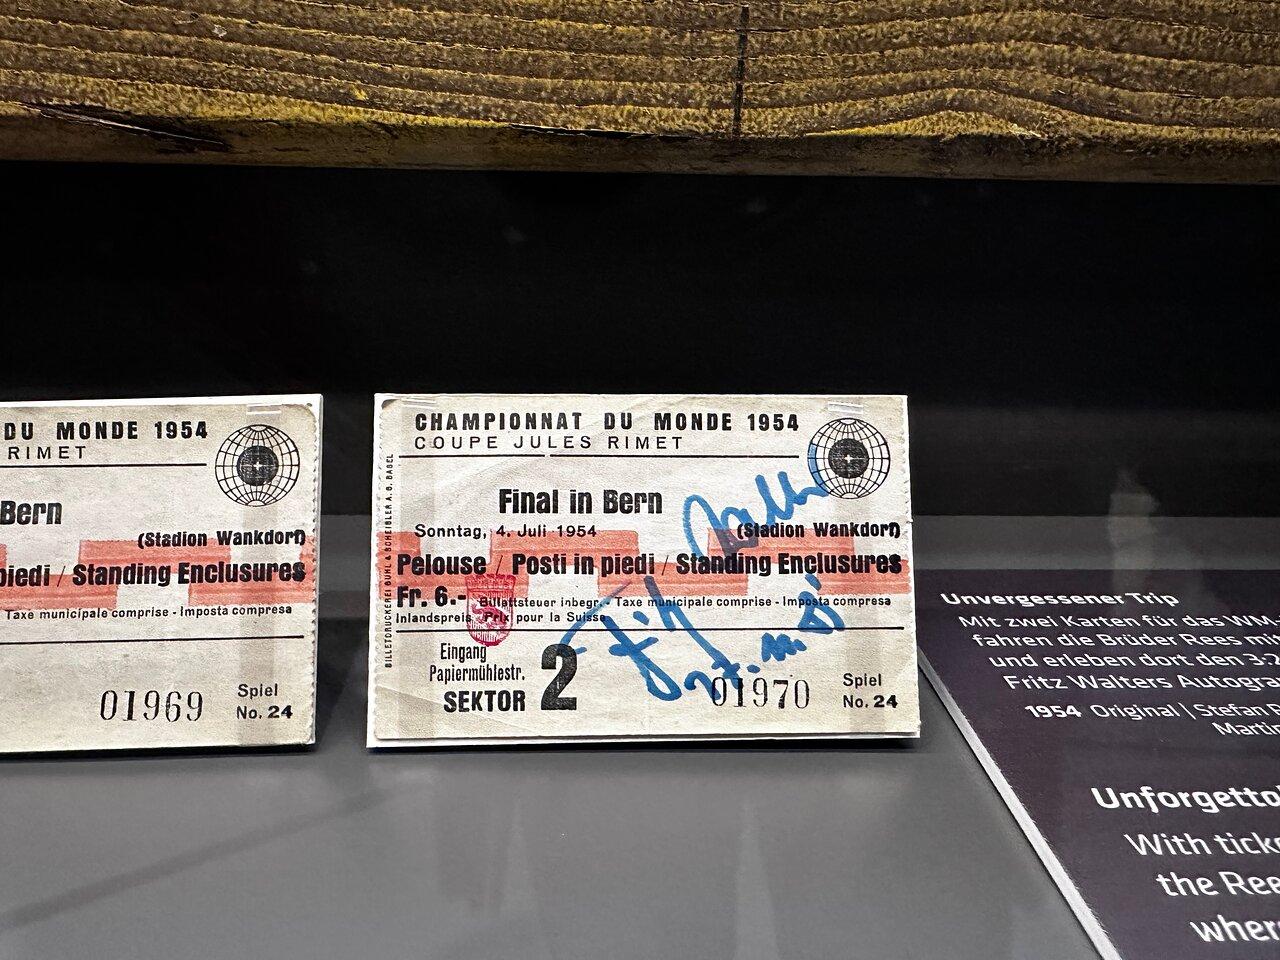 DU MONDE 1954
RIMET
Bern
(Stadion Wankdorf)
piedi / Standing Enclosures
Taxe municipale comprise - Imposta compresa
01969
Spiel
No. 24
CHAMPIONNAT DU MONDE 1954
COUPE JULES RIMET
Final in Bern
Sonntag, 4. Juli 1954
(Stadion Wankdorf)
Pelouse / Posti in piedi / Standing Enclusures
Fr. 6.- Billettsteuer inbegr. - Taxe municipale comprise - Imposta compresa
Inlandspreis Prix pour la Suisse
Eingang
Papiermühlestr.
SEKTOR 2
01970
Spiel
No. 24
BILLETDRUCKEREI RUHL & SCHEIBLER A. G. BASEL
Unvergessener Trip
Mit zwei Karten für das WM-
fahren die Brüder Rees mit
und erleben dort den 3:2
Fritz Walters Autogra
1954 Original | Stefan
Martin
Unforgetta
With ticke
the Ree
where